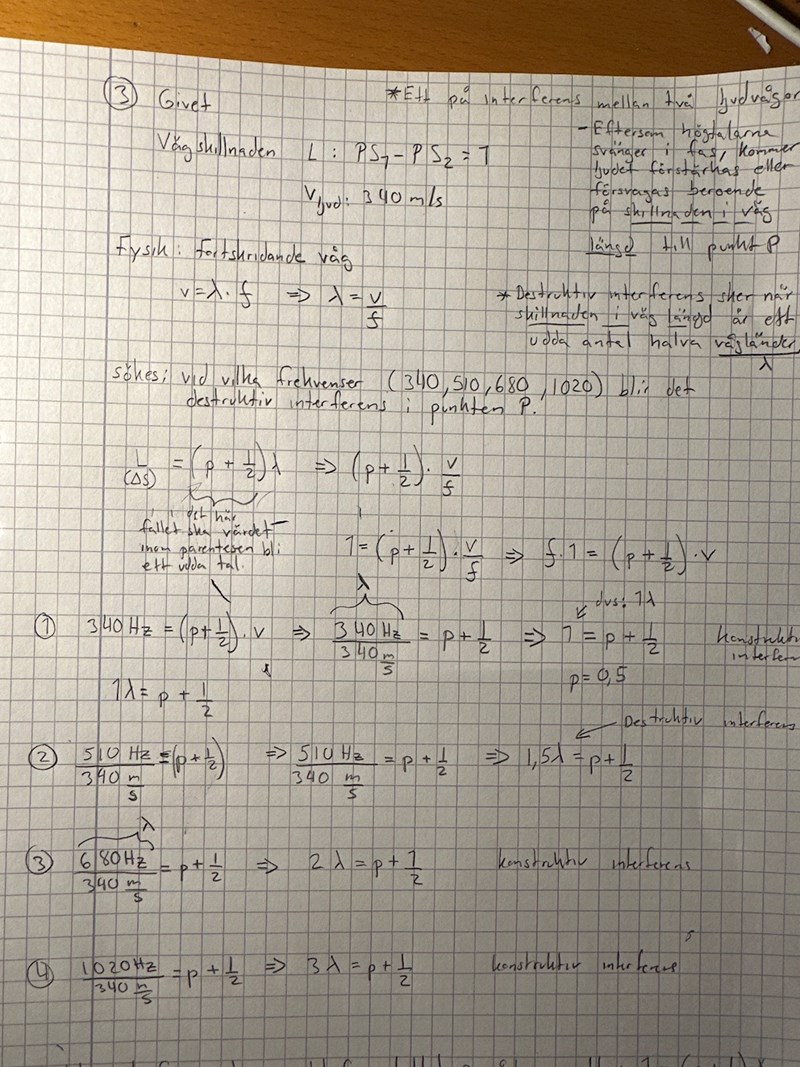 ③ Givet
Vägskillnaden L : PS₁ - PS₂ = 1
V ljud : 340 m/s
* Ett på interferens mellan två ljudvågor
- Eftersom högtalarna
svänger i fas, kommer
ljudet förstärkas eller
försvagas beroende
på skillnaden i väg
längd till punkt P
Fysik: Fortskridande våg
v = λ · f ⇒ λ = v/f
* Destruktiv interferens sker när
skillnaden i väg längd är ett
udda antal halva vågländer
λ
sökes: vid vilka frekvenser (340, 510, 680, 1020) blir det
destruktiv interferens i punkten P.
L (Δs) = (p + 1/2) λ ⇒ (p + 1/2) · v/f
i det här
fallet ska värdet
inom parentesen bli
ett udda tal.
1 = (p + 1/2) · v/f ⇒ f · 1 = (p + 1/2) · v
λ
dvs: 1λ
① 340 Hz = (p + 1/2) · v ⇒ 340 Hz / 340 m/s = p + 1/2 ⇒ 1 = p + 1/2 konstruktiv
interferen
p = 0,5
1λ = p + 1/2
Destruktiv interferens
② 510 Hz / 340 m/s = (p + 1/2) ⇒ 510 Hz / 340 m/s = p + 1/2 ⇒ 1,5λ = p + 1/2
λ
③ 680 Hz / 340 m/s = p + 1/2 ⇒ 2λ = p + 1/2 konstruktiv interferens
④ 1020 Hz / 340 m/s = p + 1/2 ⇒ 3λ = p + 1/2 konstruktiv interferens